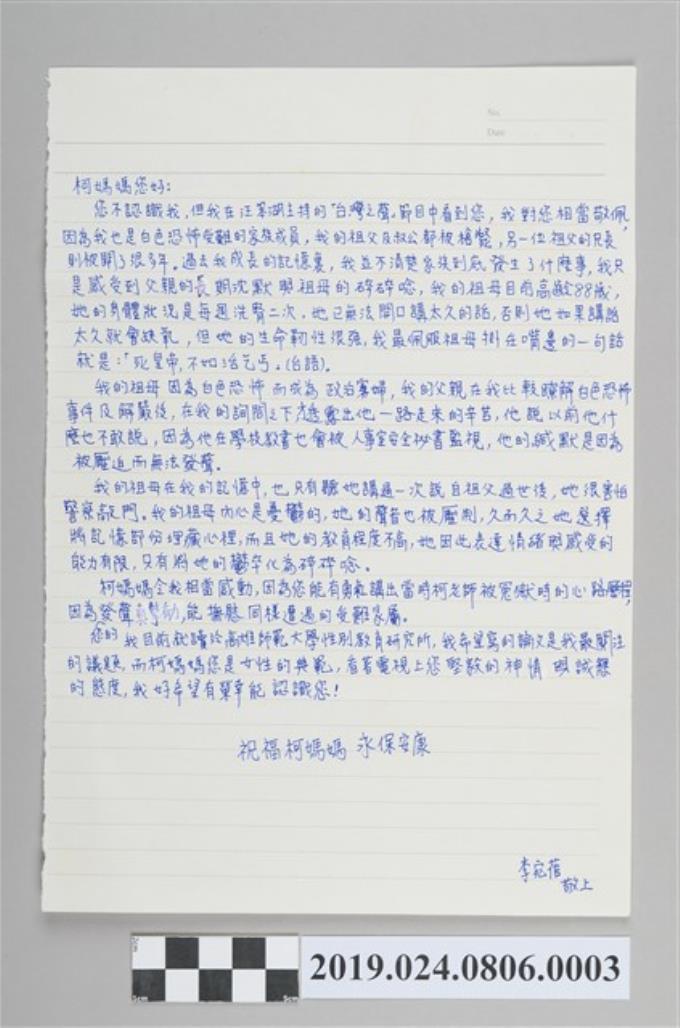 No.
Date
柯媽媽您好：
您不認識我，但我在汪笨湖主持的「台灣之聲」節目中看到您，我對您相當敬佩，
因為我也是白色恐怖受難的家族成員，我的祖父及叔公都被槍斃，另一位祖父的兄長
則被關了很多年。過去我成長的記憶裏，我並不清楚家族到底發生了什麼事，我只
是感受到父親的長期沈默與祖母的碎碎唸，我的祖母目前高齡88歲，
她的身體狀況是每週洗腎二次，她已無法開口講太久的話，否則她如果講話
太久就會缺氧，但她的生命韌性很強，我最佩服祖母掛在嘴邊的一句話
就是：「死皇帝，不如活乞丐。(台語)。
我的祖母因為白色恐怖而成為政治寡婦，我的父親在我比較瞭解白色恐怖
事件及解嚴後，在我的詢問之下透露出他一路走來的辛苦，他說以前他什
麼也不敢說，因為他在學校教書也會被人事室安全祕書監視，他的緘默是因為
被壓迫而無法發聲。
我的祖母在我的記憶中，也只有聽她講過一次說自祖父過世後，她很害怕
警察敲門。我的祖母內心是憂鬱的，她的聲音也被壓制，久而久之她選擇
將記憶部份埋藏心裡，而且她的教育程度不高，她因此表達情緒與感受的
能力有限，只有將她的鬱卒化為碎碎唸。
柯媽媽令我相當感動，因為您能有勇氣講出當時柯老師被冤獄時的心路歷程，
因為發聲，能撫慰同樣遭遇的受難家屬。
我目前就讀於高雄師範大學性別教育研究所，我希望寫的論文是我最關注
的議題，而柯媽媽您是女性的典範，看著電視上您堅毅的神情與誠懇
的態度，我好希望有榮幸能認識您！
祝福柯媽媽 永保安康
李宛蓓
敬上
2019.024.0806.0003